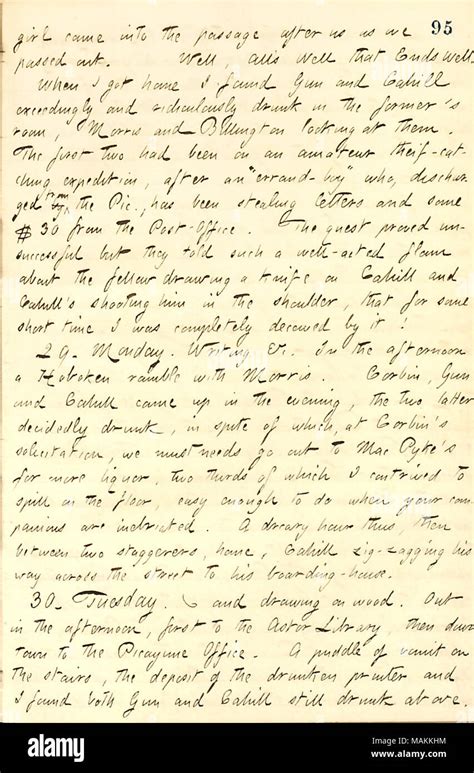 95
girl came into the passage after us as we
passed out. Well, all's Well that Ends Well.
When I got home I found Gun and Cahill
exceedingly and ridiculously drunk in the former's
room, Morris and Billington looking at them.
The first two had been on an amateur theif-cat-
ching expedition, after an "errand-boy" who, dischar-
ged from the Pic., has been stealing letters and some
$30 from the Post-Office. The quest proved un-
successful but they told such a well-acted flam
about the fellow drawing a knife on Cahill and
Cahill's shooting him in the shoulder, that for some
short time I was completely deceived by it!
29. Monday. Writing &c. In the afternoon
a Hoboken ramble with Morris. Corbin, Gun
and Cahill came up in the evening, the two latter
decidedly drunk, in spite of which, at Corbin's
solicitation, we must needs go out to Mac Pyke's
for more liquor, two thirds of which I contrived to
spill on the floor, easy enough to do when your com-
panions are inebriated. A dreary hour thus, then
between two staggerers, home, Cahill zig-zagging his
way across the street to his boarding-house.
30. Tuesday. and drawing on wood. Out
in the afternoon, first to the Astor Library, then down
town to the Picayune Office. A puddle of vomit on
the stairs, the deposit of the drunken printer and
I found both Gun and Cahill still drunk above.
alamy
Image ID: MAKKHM
www.alamy.com